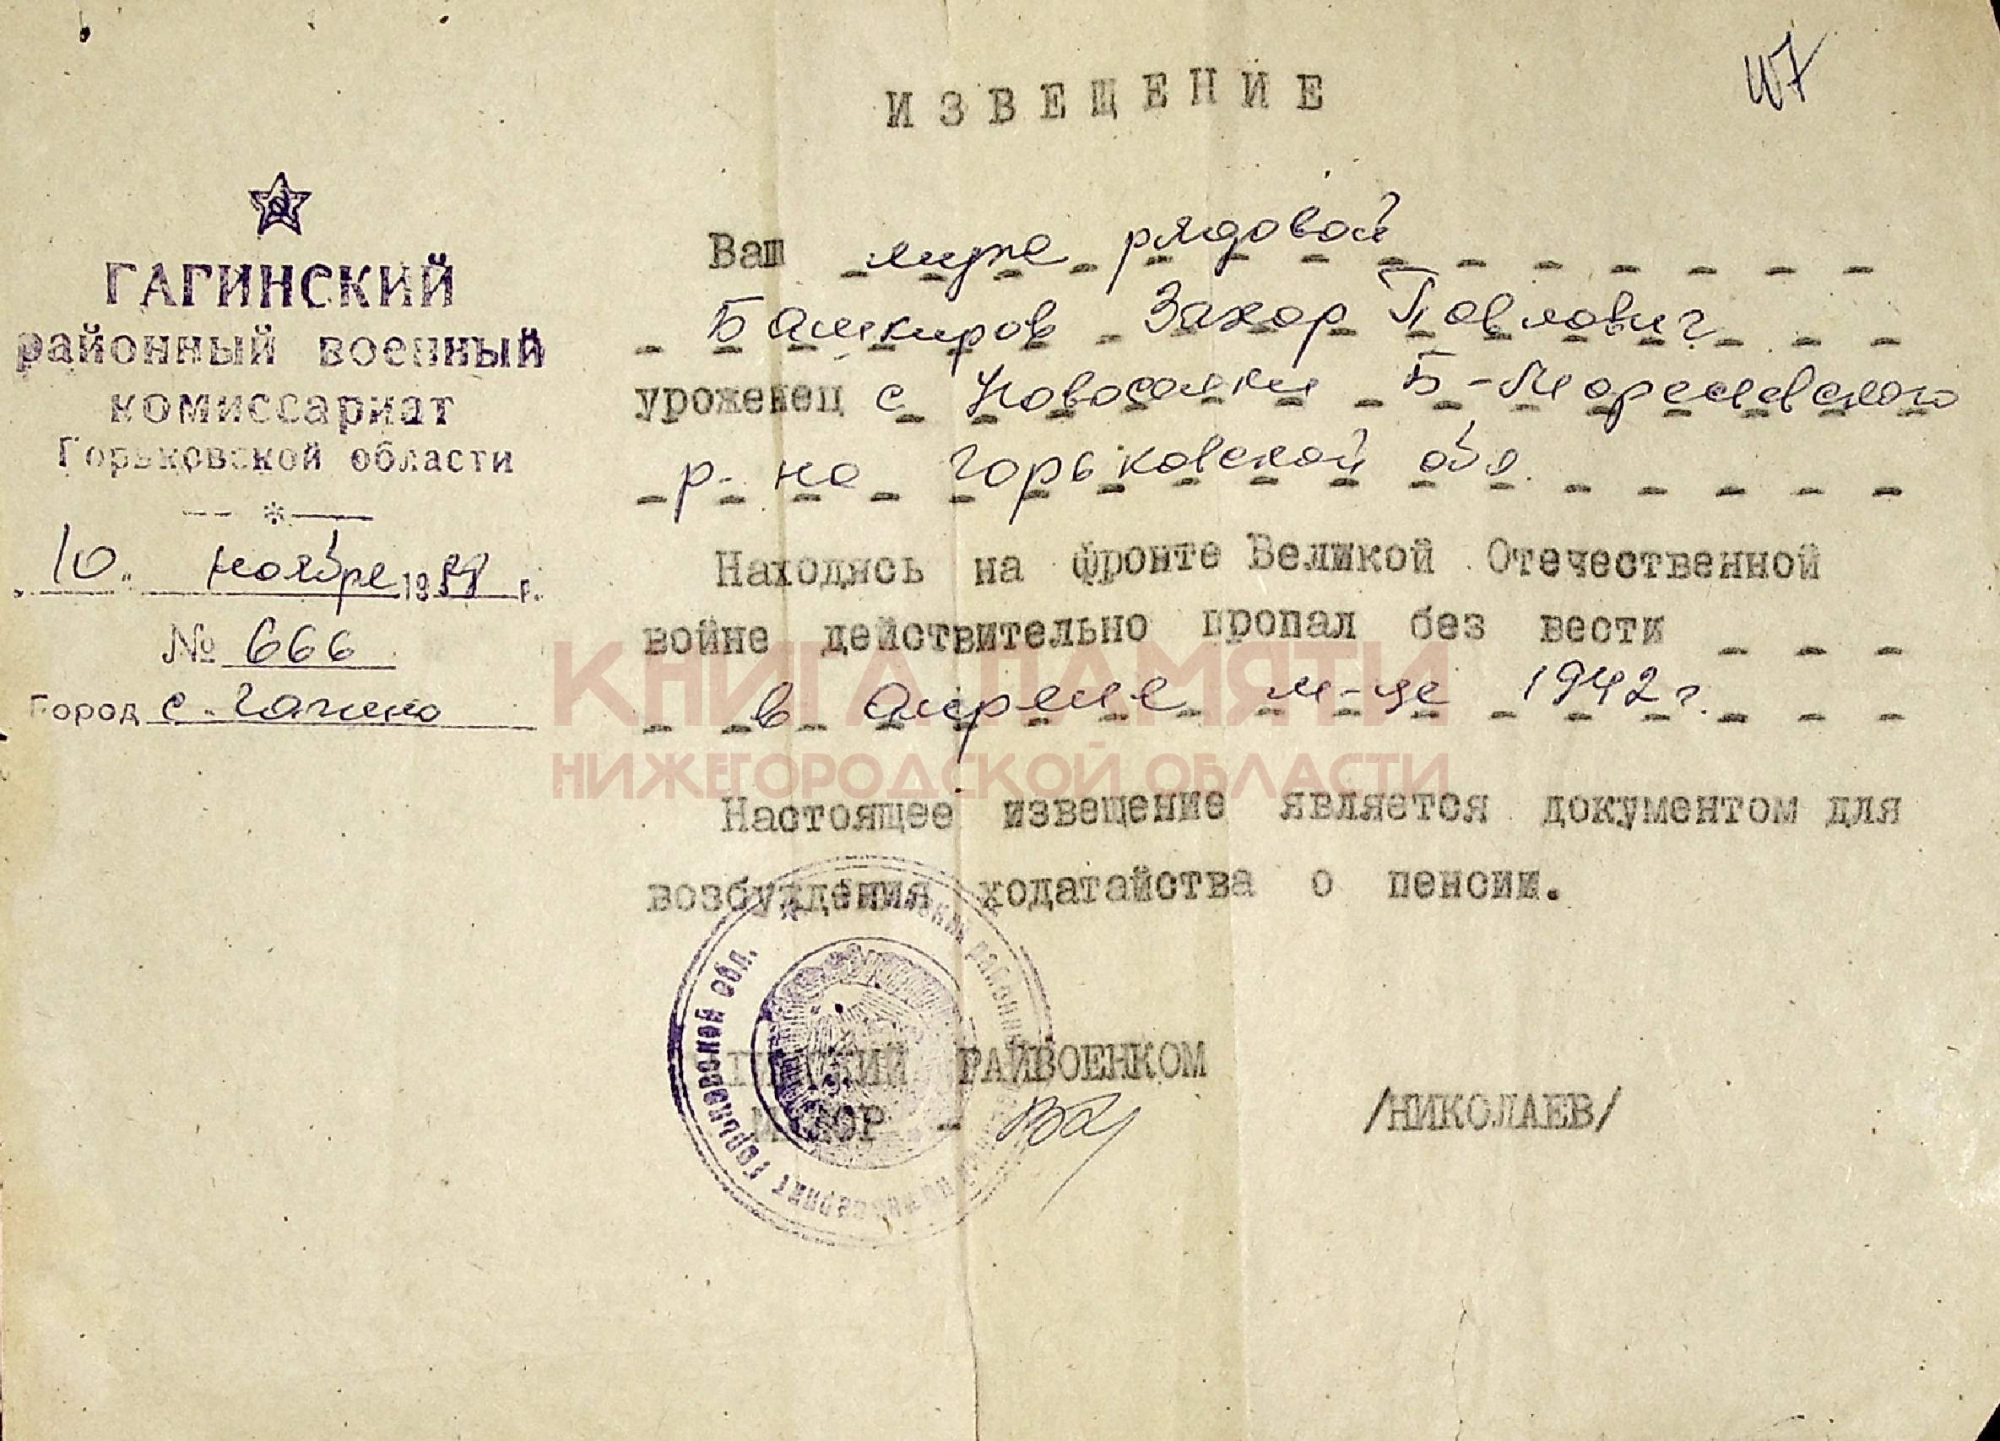 ИЗВЕЩЕНИЕ
ГАГИНСКИЙ
районный военный
комиссариат
Горьковской области
10 ноября 19 г.
№ 666
Город с. Гагино
Ваш муж рядовой
Башкиров Захар Павлович
уроженец с Новоселки Б-Моресевского
р-на Горьковской обл.
Находясь на фронте Великой Отечественной
войне действительно пропал без вести
в апреле м-це 1942 г.
Настоящее извещение является документом для
возбуждения ходатайства о пенсии.
РАЙВОЕНКОМ
МАЙОР -
/НИКОЛАЕВ/
Горьковской обл.
КНИГА ПАМЯТИ
НИЖЕГОРОДСКОЙ ОБЛАСТИ